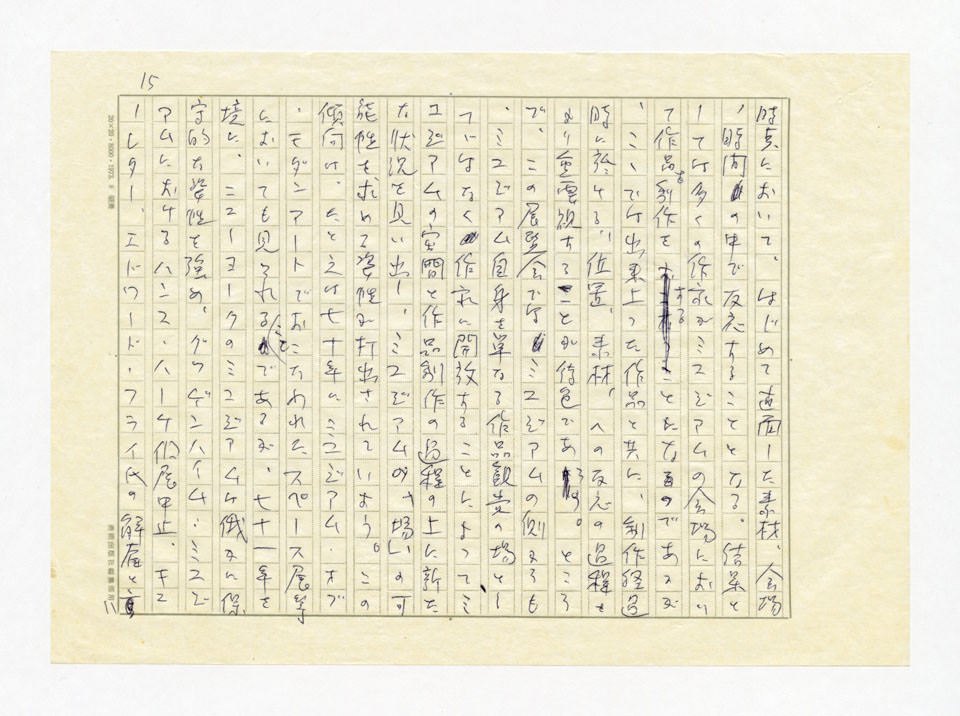 15
時点において、はじめて直面した素材、会場
、時間の中で反応することとなる。結果と
しては多くの作家がミュゼアムの会場におい
て作品を創作をすることとなるのであるが
、ここでは出来上った作品と共に、制作経過
時に於ける、位置、素材、への反応の過程も
より重要視することが特色であろう。ところ
で、この展覧会では、ミュゼアムの側よりも
、ミュゼアム自身を単なる作品観賞の場とし
てではなく作家に開放することによってミ
ュゼアムの空間と作品創作の過程の上に新た
な状況を見い出し、ミュゼアムの「場」の可
能性を求める姿性が打出されていよう。この
傾向は、たとえば七十年にミュゼアム・オブ
・モダンアートでおこなわれたスペース展等
においても見られることであるが、七十一年を
境に、ニューヨークのミュゼアムは俄かに保
守的な姿性を強め、グウゲンハイム・ミュゼ
アムに於けるハンス・ハーケ個展中止、キュ
レーター、エドワード・フライ氏の解雇と
20×20